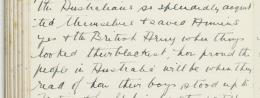 the Australians so splendidly acquit
ted themselves & saved Amiens
yes & the British Army when things
looked their blackest, how proud the
people in Australia will be when they
read of how their boys stood up to